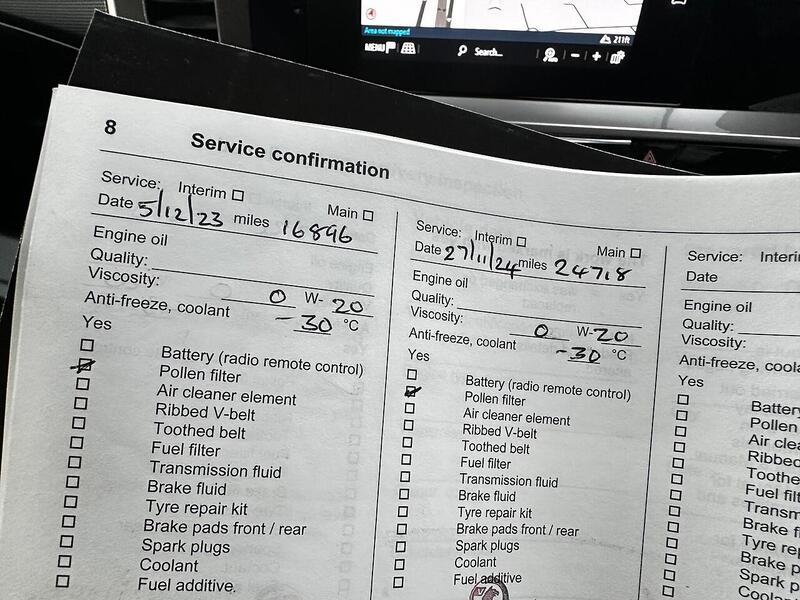 Area not mapped
211ft
MENU
Search...
8
Service confirmation
Service: Interim
Main
Date 5/12/23 miles 16896
Engine oil
Quality:
Viscosity: 0 W- 20
Anti-freeze, coolant -30 °C
Yes
Battery (radio remote control)
Pollen filter
Air cleaner element
Ribbed V-belt
Toothed belt
Fuel filter
Transmission fluid
Brake fluid
Tyre repair kit
Brake pads front / rear
Spark plugs
Coolant
Fuel additive.
Service: Interim
Main
Date 27/11/24 miles 24718
Engine oil
Quality:
Viscosity: 0 W-20
Anti-freeze, coolant -30 °C
Yes
Battery (radio remote control)
Pollen filter
Air cleaner element
Ribbed V-belt
Toothed belt
Fuel filter
Transmission fluid
Brake fluid
Tyre repair kit
Brake pads front / rear
Spark plugs
Coolant
Fuel additive
Service: Interi
Date
Engine oil
Quality:
Viscosity:
Anti-freeze, coola
Yes
Battery
Pollen
Air clea
Ribbed
Toothe
Fuel filt
Transm
Brake f
Tyre rep
Brake p
Spark p
Coolan